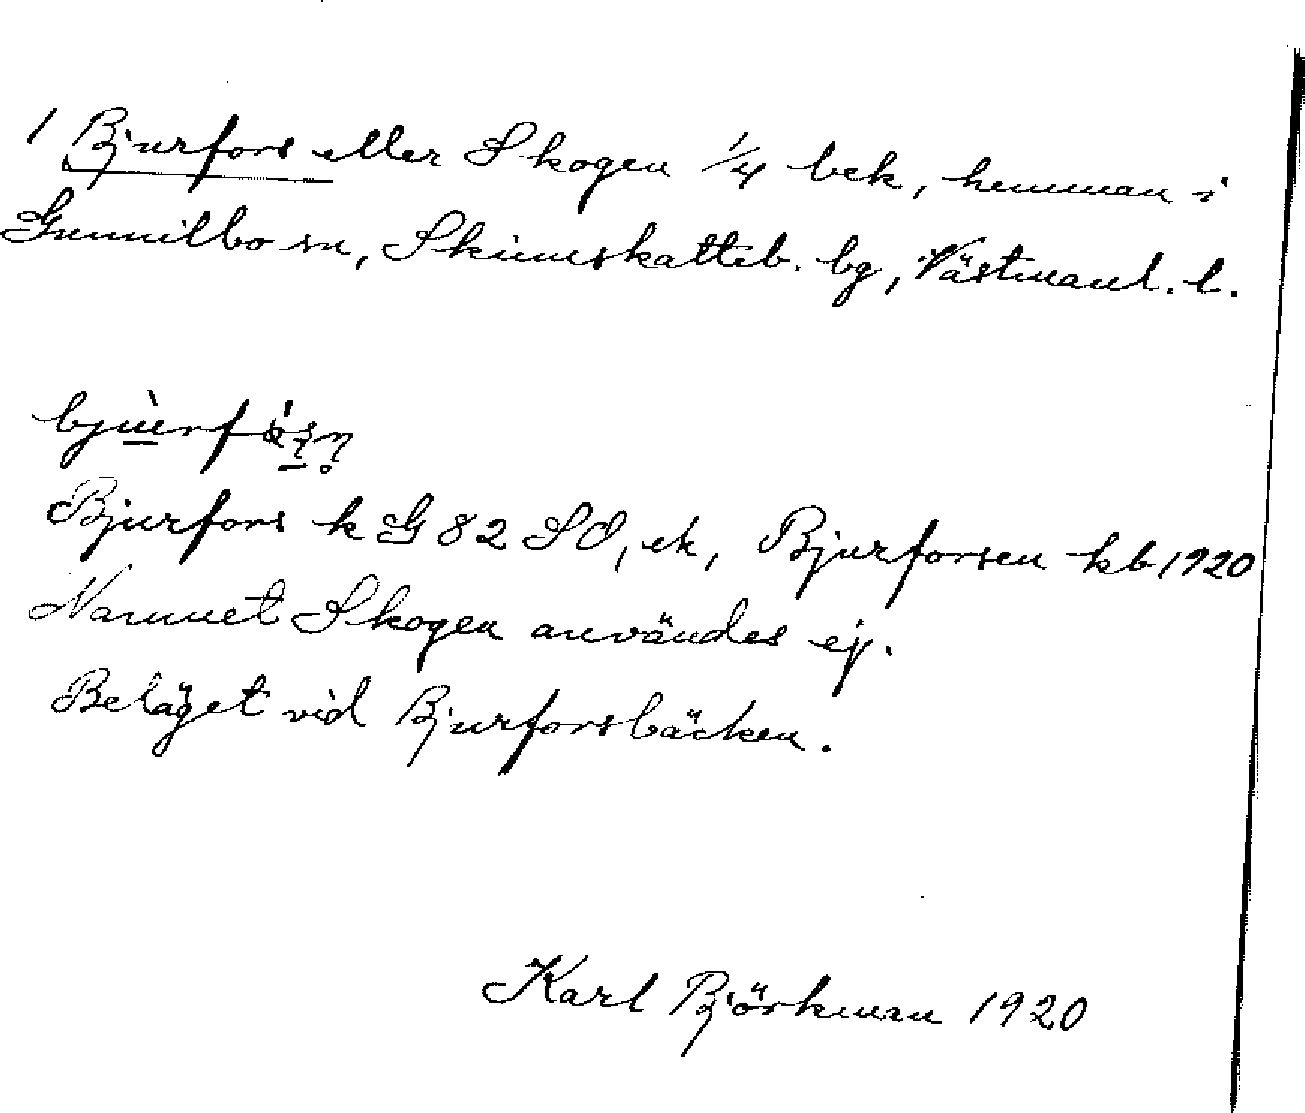 1 Bjurfors eller Skogen 1/4 bek, hemman i
Gunnilbo sn, Skinnskatteb. bg, Västmanl. l.
Bjurfors k G 82 SO, ek, Bjurforsen kb 1920
Namnet Skogen användes ej.
Beläget vid Bjurforsbäcken.
Karl Björkman 1920